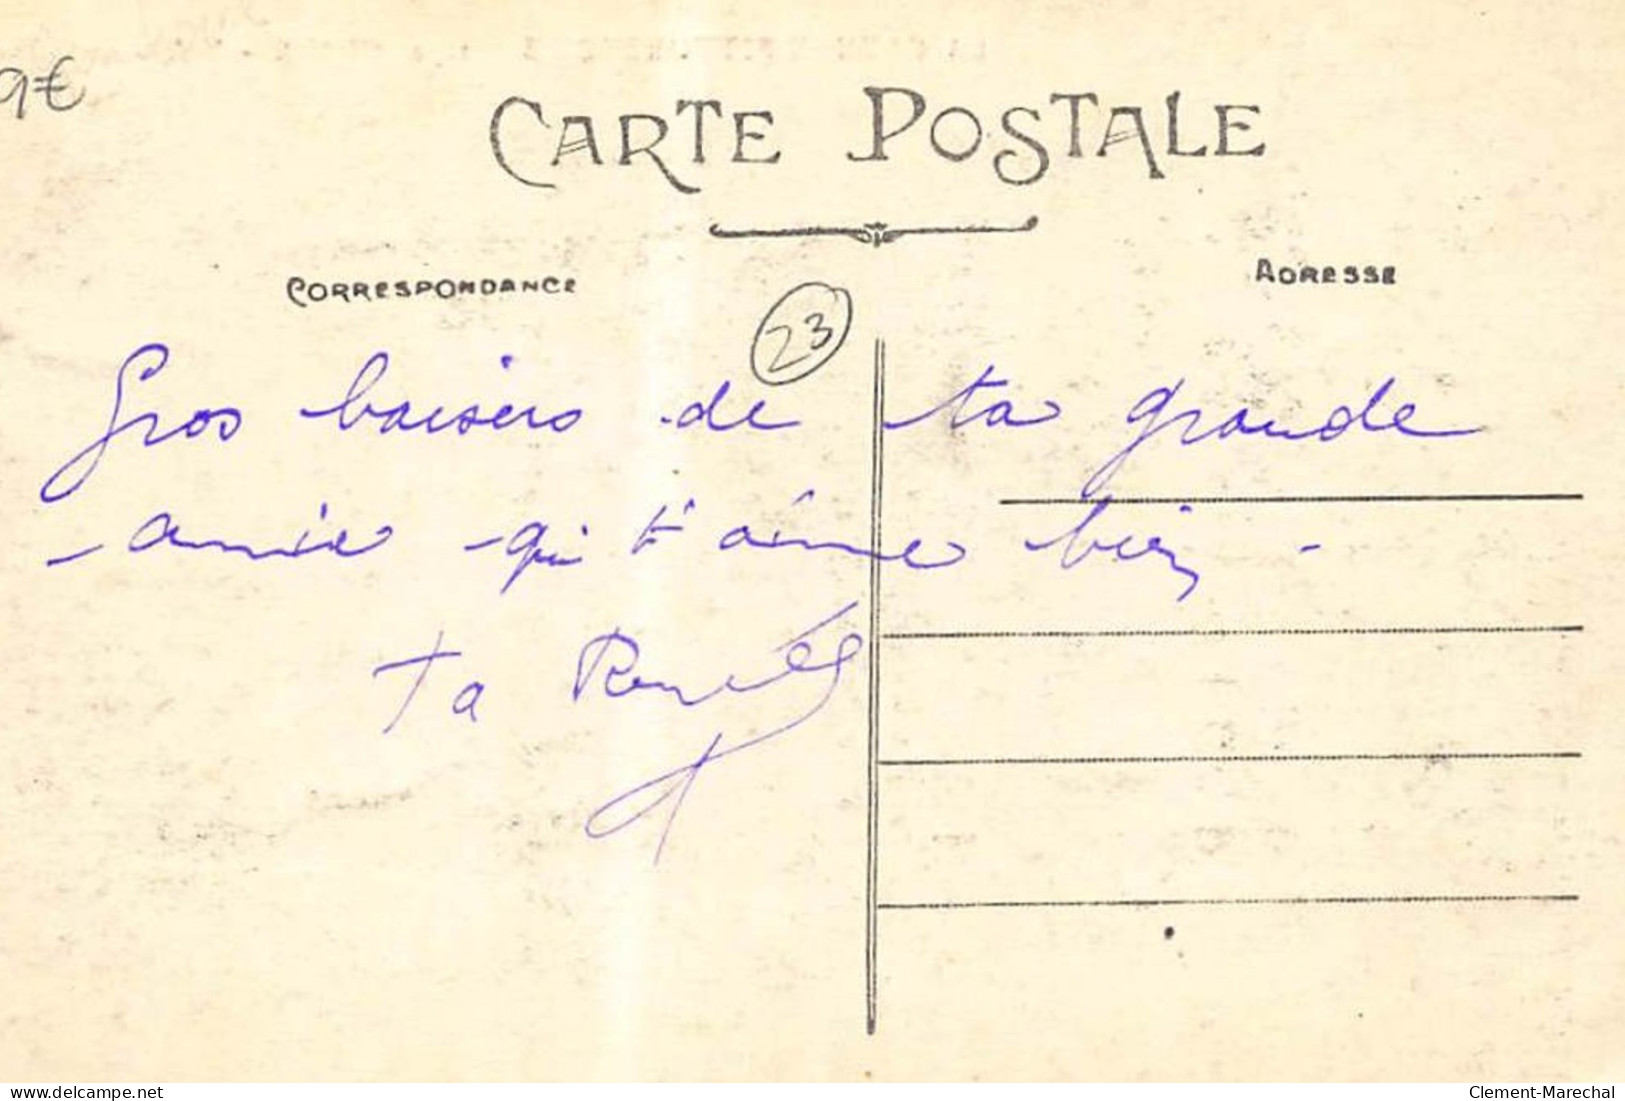 9€
CARTE POSTALE
CORRESPONDANCE
ADRESSE
23
Gros baisers de ta grande
amie qui t'aime bien -
ta Renée
delcampe.net
Clement-Marechal